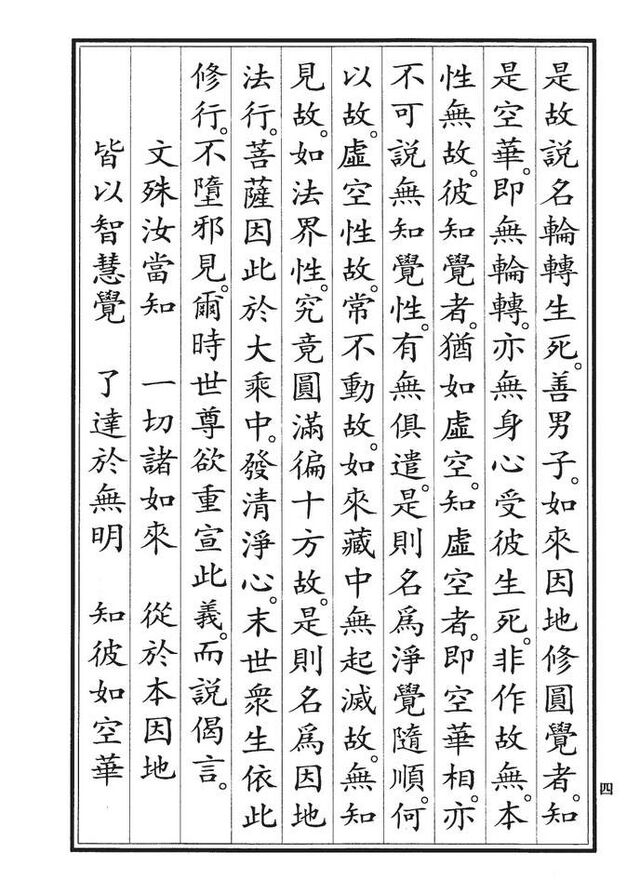 是故說名輪轉生死。善男子。如來因地修圓覺者。知
是空華。即無輪轉。亦無身心受彼生死。非作故無。本
性無故。彼知覺者。猶如虛空。知虛空者。即空華相。亦
不可說無知覺性。有無俱遣。是則名為淨覺隨順。何
以故。虛空性故。常不動故。如來藏中無起滅故。無知
見故。如法界性。究竟圓滿徧十方故。是則名為因地
法行。菩薩因此於大乘中。發清淨心。末世眾生依此
修行。不墮邪見。爾時世尊欲重宣此義。而說偈言。
文殊汝當知 一切諸如來 從於本因地
皆以智慧覺 了達於無明 知彼如空華
四